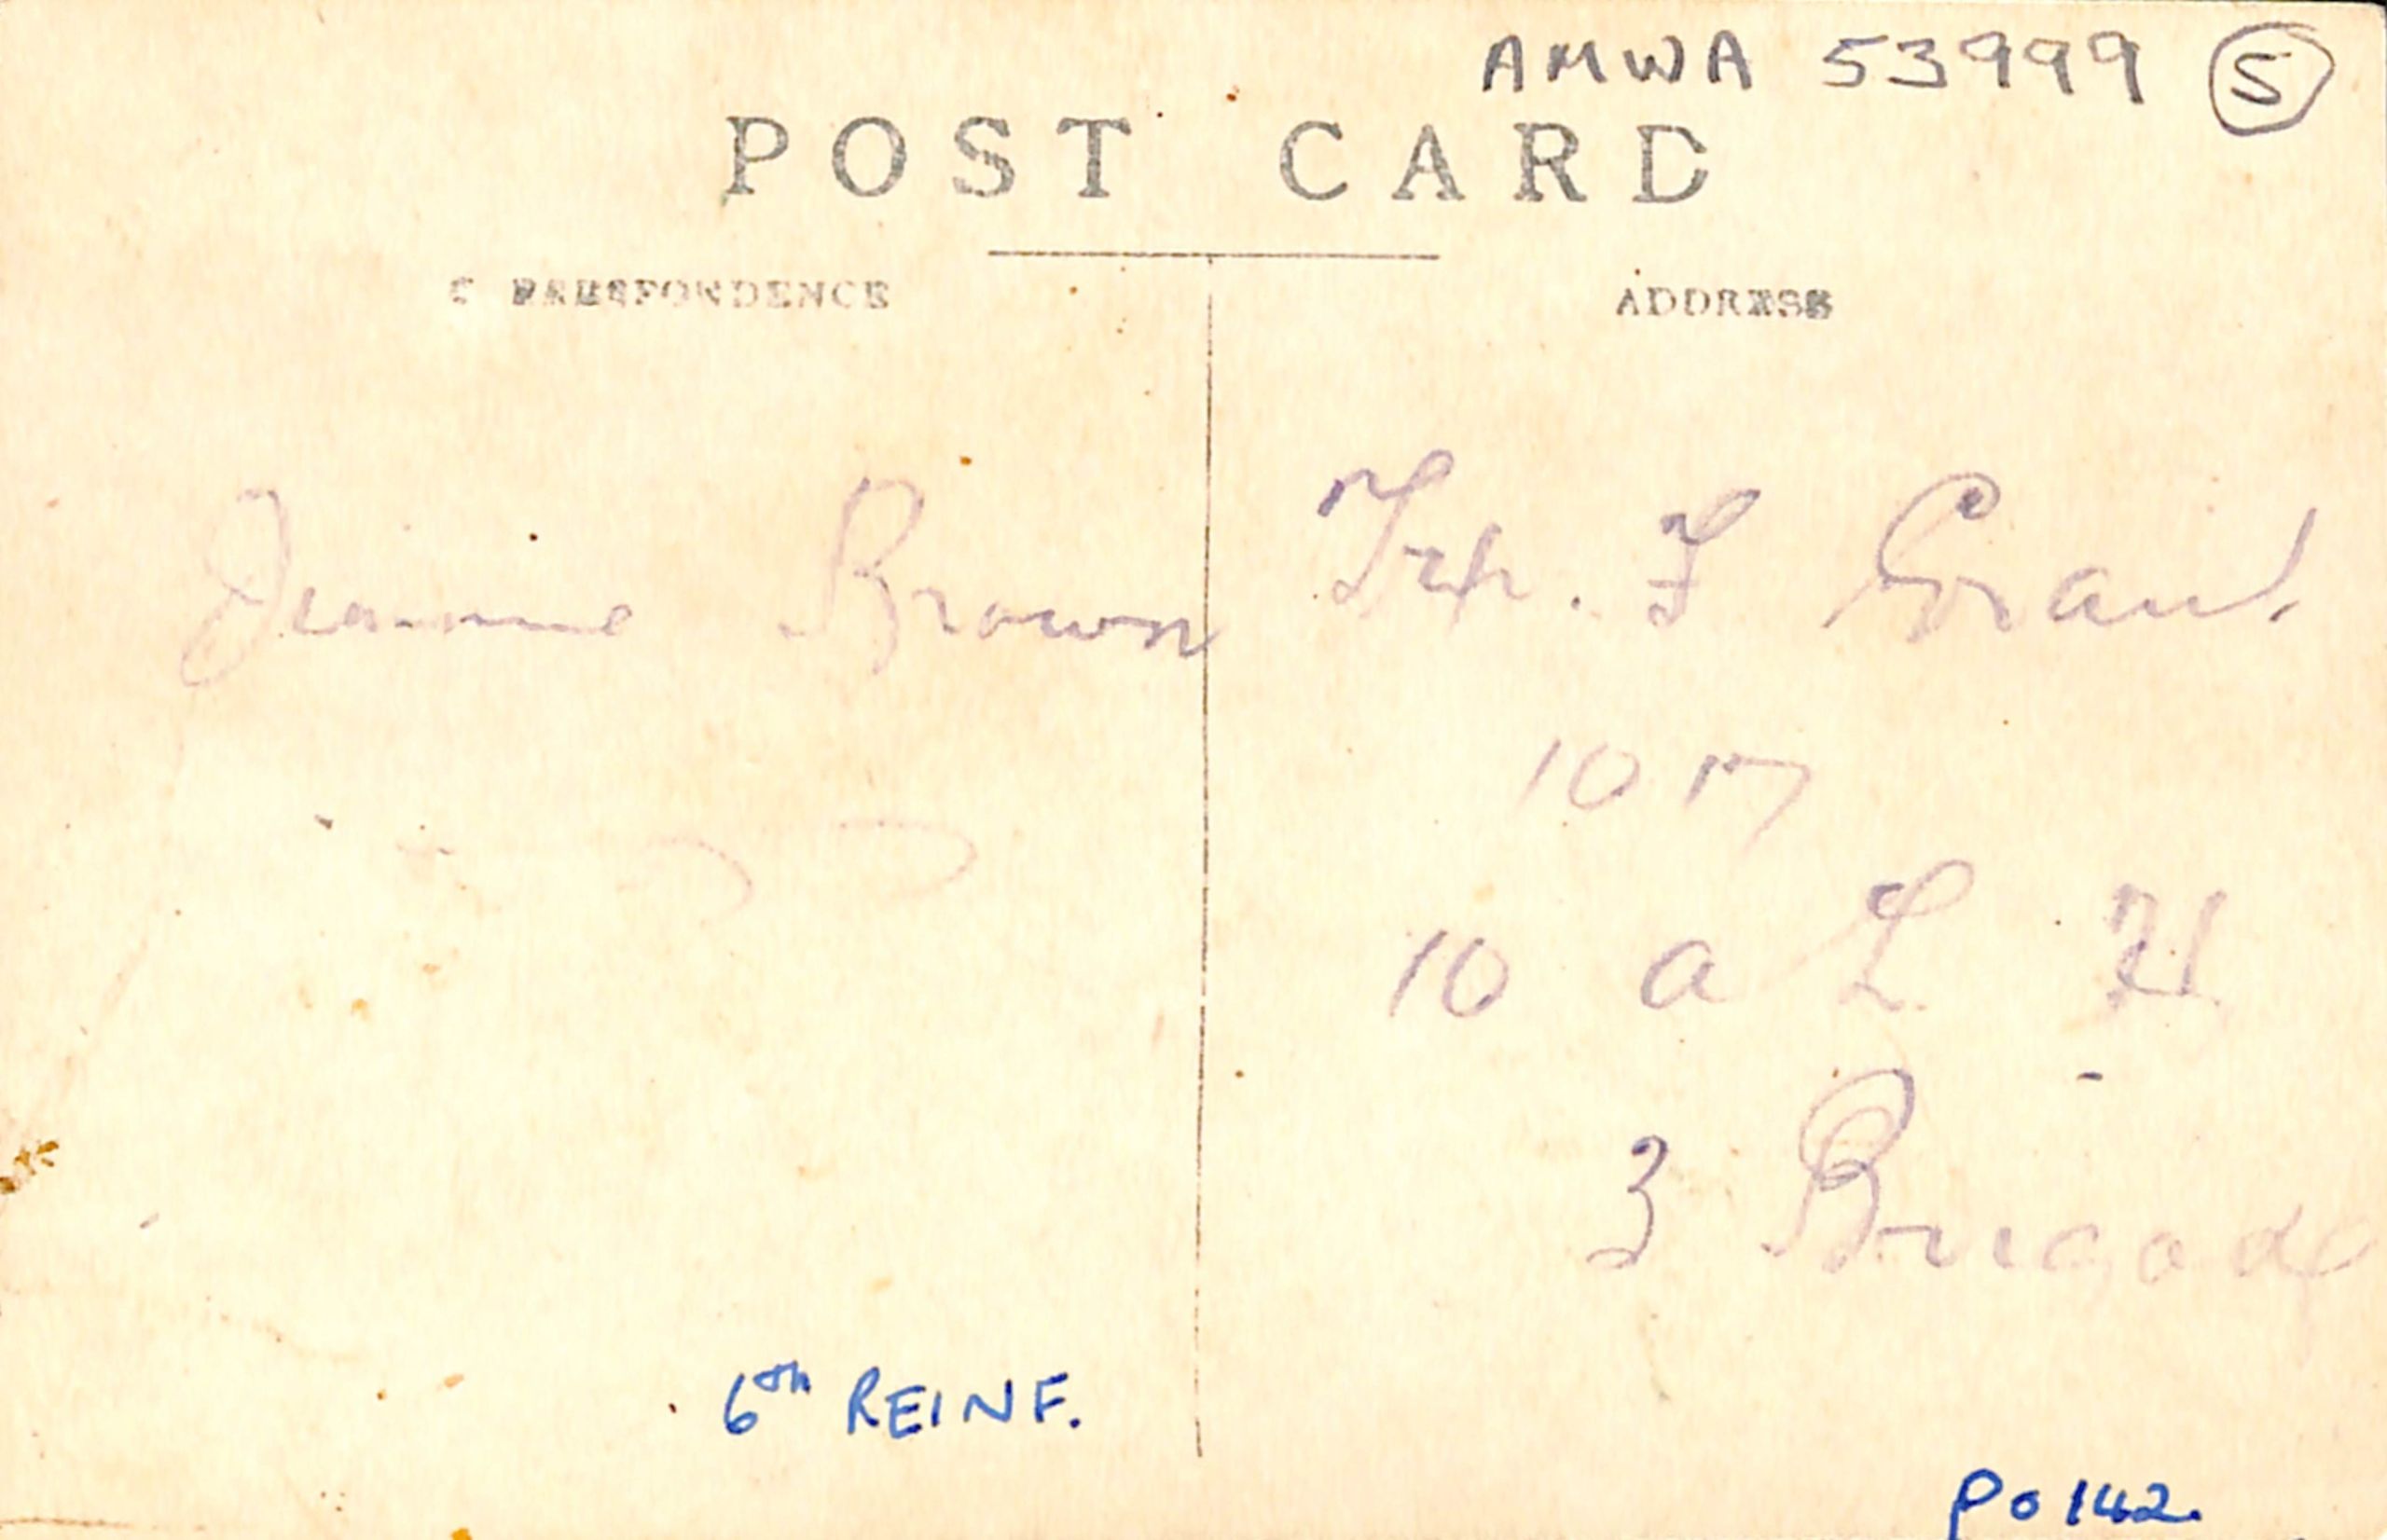 AMWA 53999 (5)
POST CARD
CORRESPONDENCE
ADDRESS
Jeannie Brown
Trp. F Grant
1017
10 a L H
3 Brigade
6th REINF.
PO 142.